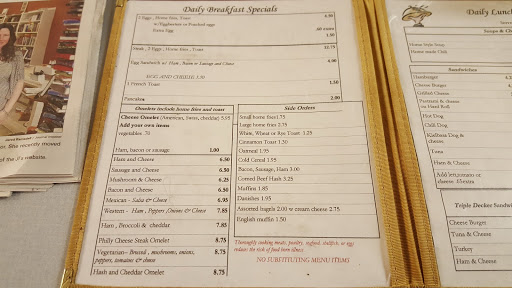 Daily Breakfast Specials
2 Eggs , Home fries, Toast 6.50
w/Eggbeaters or Poached eggs
Extra Egg
1.50
Steak , 2 Eggs , Home fries , Toast 12.75
Egg Sandwich w/ Ham , Bacon or Sausage and Cheese 4.00
EGG AND CHEESE 3.50
1 French Toast 1.50
Pancakes 2.00
Omelets include home fries and toast
Cheese Omelet (American, Swiss, cheddar) 5.95
Add your own items
vegetables .70
Ham, bacon or sausage 1.00
Ham and Cheese 6.50
Sausage and Cheese 6.50
Mushroom & Cheese 6.25
Bacon and Cheese 6.50
Mexican - Salsa & Cheese 6.95
Western - Ham , Peppers ,Onions & Cheese 7.85
Ham , Broccoli & cheddar 7.85
Philly Cheese Steak Omelet 8.75
Vegetarian– Broccoli , mushrooms, onions, 8.75
peppers, tomatoes & cheese
Hash and Cheddar Omelet 8.75
Side Orders
Small home fries 1.75
Large home fries 2.75
White, Wheat or Rye Toast 1.25
Cinnamon Toast 1.50
Oatmeal 1.95
Cold Cereal 1.95
Bacon, Sausage, Ham 3.00
Corned Beef Hash 3.25
Muffins 1.85
Danishes 1.95
Assorted bagels 2.00 w cream cheese 2.75
English muffin 1.50
Thoroughly cooking meats, poultry, seafood, shellfish, or eggs
reduces the risk of food borne illness
NO SUBSTITUTING MENU ITEMS
Daily Lunch
Soups & Ch
Home made Chili
Sandwiches
Hamburger
Cheese Burger
Grilled Cheese
Pastrami & cheese
on Hard Roll
Hot Dog
Chili Dog
Kielbasa Dog &
cheese
Tuna
Ham & Cheese
Add lett,tomato or
cheese
Triple Decker Sandw
Cheese Burger
Tuna & Cheese
Turkey
Ham & Cheese
or. She recently moved
of the JI's website.